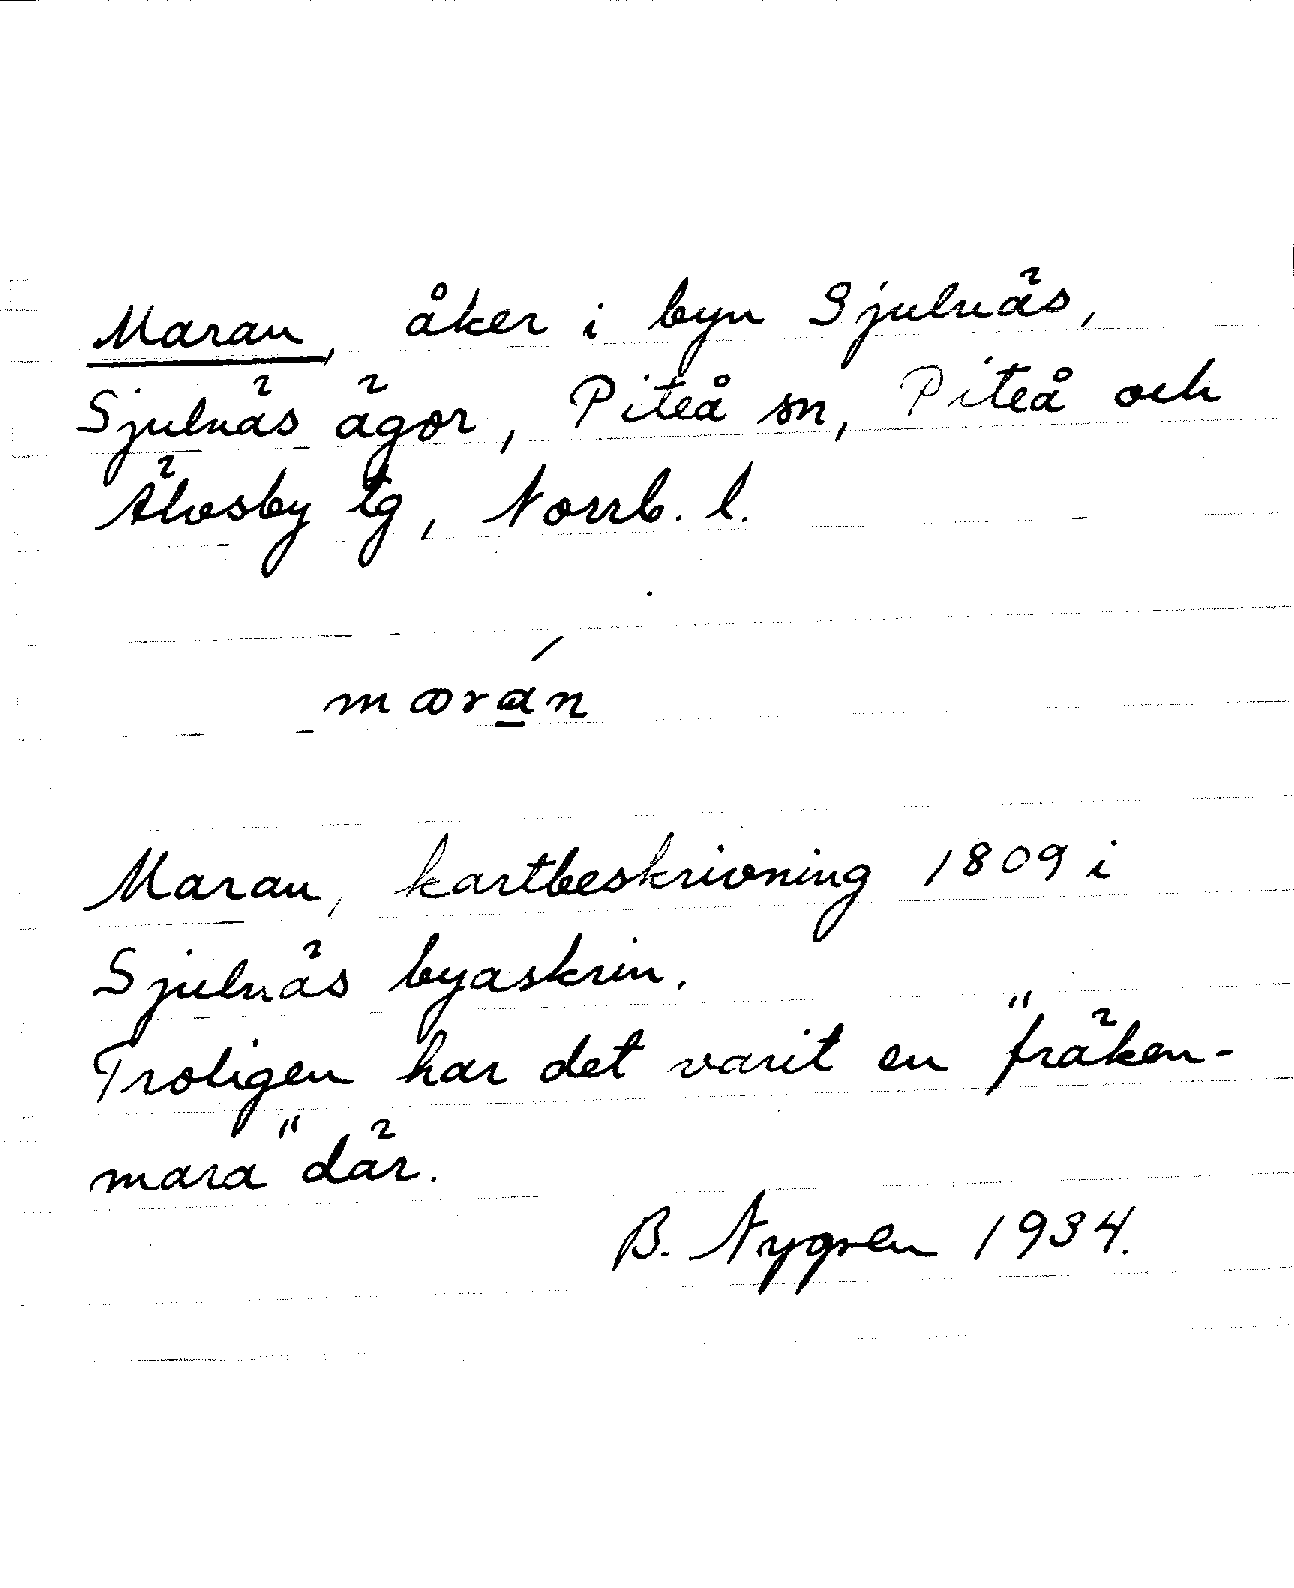 Maran, åker i byn Sjulnäs,
Sjulnäs ägor, Piteå sn, Piteå och
Älvsby tg, Norrb. l.
mærá̲n
Maran, kartbeskrivning 1809 i
Sjulnäs byaskrin.
Troligen har det varit en "fräken-
mara" där.
B. Nygren 1934.